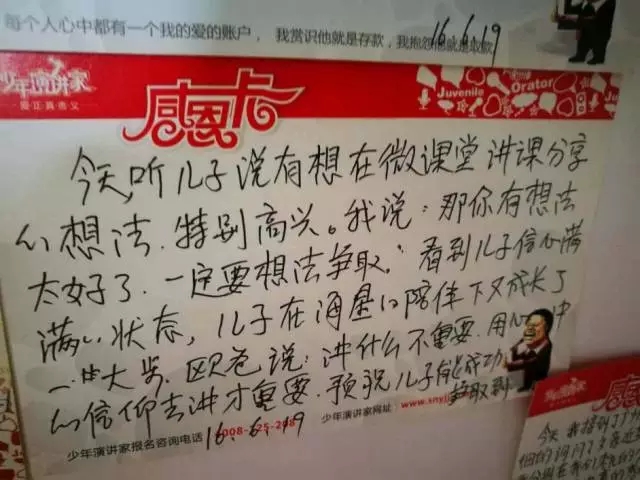 每个人心中都有一个我的爱的账户，我赏识他就是存款，我抱怨他就是取款
16.6.19
少年演讲家
爱正真贵义
感恩卡
Juvenile Orator
今天,听儿子说有想在微课堂讲课分享
的想法.特别高兴。我说：那你有想法
太好了.一定要想法争取。看到儿子信心满
满的状态，儿子在海星的陪伴下又成长了
一大步.欧爸说：讲什么不重要.用心中
的信仰去讲才重要.预祝儿子能成功
争取到
少年演讲家报名咨询电话
少年演讲家网址：www.sny
16.6.19
少年演讲家
感恩
今天